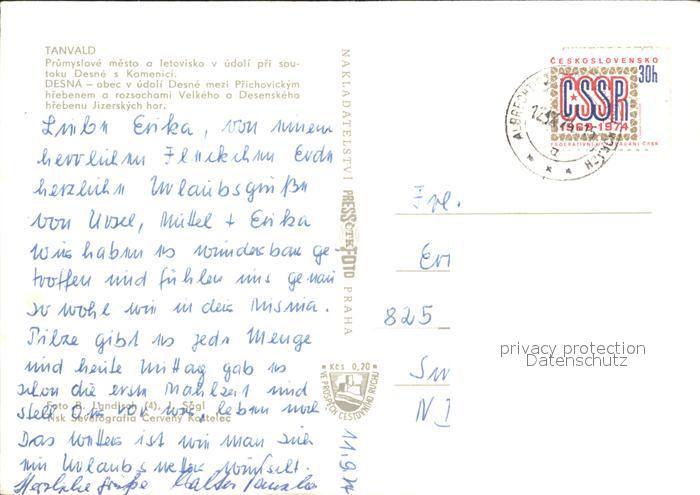 TANVALD
Průmyslové město a letovisko v údolí při sou-
toku Desné s Kamenicí.
DESNÁ – obec v údolí Desné mezi Příchovickým
hřebenem a rozsochami Velkého a Desenského
hřebenu Jizerských hor.
Liebe Erika, von einem
herrlichen Fleckchen Erde
herzliche Urlaubsgrüße
von Ursel, Mittel + Erika
Wir haben es wunderbar ge-
troffen und fühlen uns genau
so wohl wie in der
Pilze gibt es jede Menge
und heute Mittag gab es
schon die erste Mahlzeit und
stell Dir vor wir leben noch
Das Wetter ist wie man sich
ein Urlaubswetter wünscht.
Herzliche Grüße Walter
Foto B. Landisch (4), J. Ságl
Tisk Severografia Červený Kostelec
NAKLADATELSTVÍ PRESSFOTO PRAHA
ČTK
Kčs 0,20
VE PROSPĚCH CESTOVNÍHO RUCHU
11.9.74
ČESKOSLOVENSKO
30h
ČSSR
1968-1974
FEDERATIVNÍ USPOŘÁDÁNÍ ČSSR
ALBRECHTICE
Frl.
Eri
825
N
privacy protection
Datenschutz